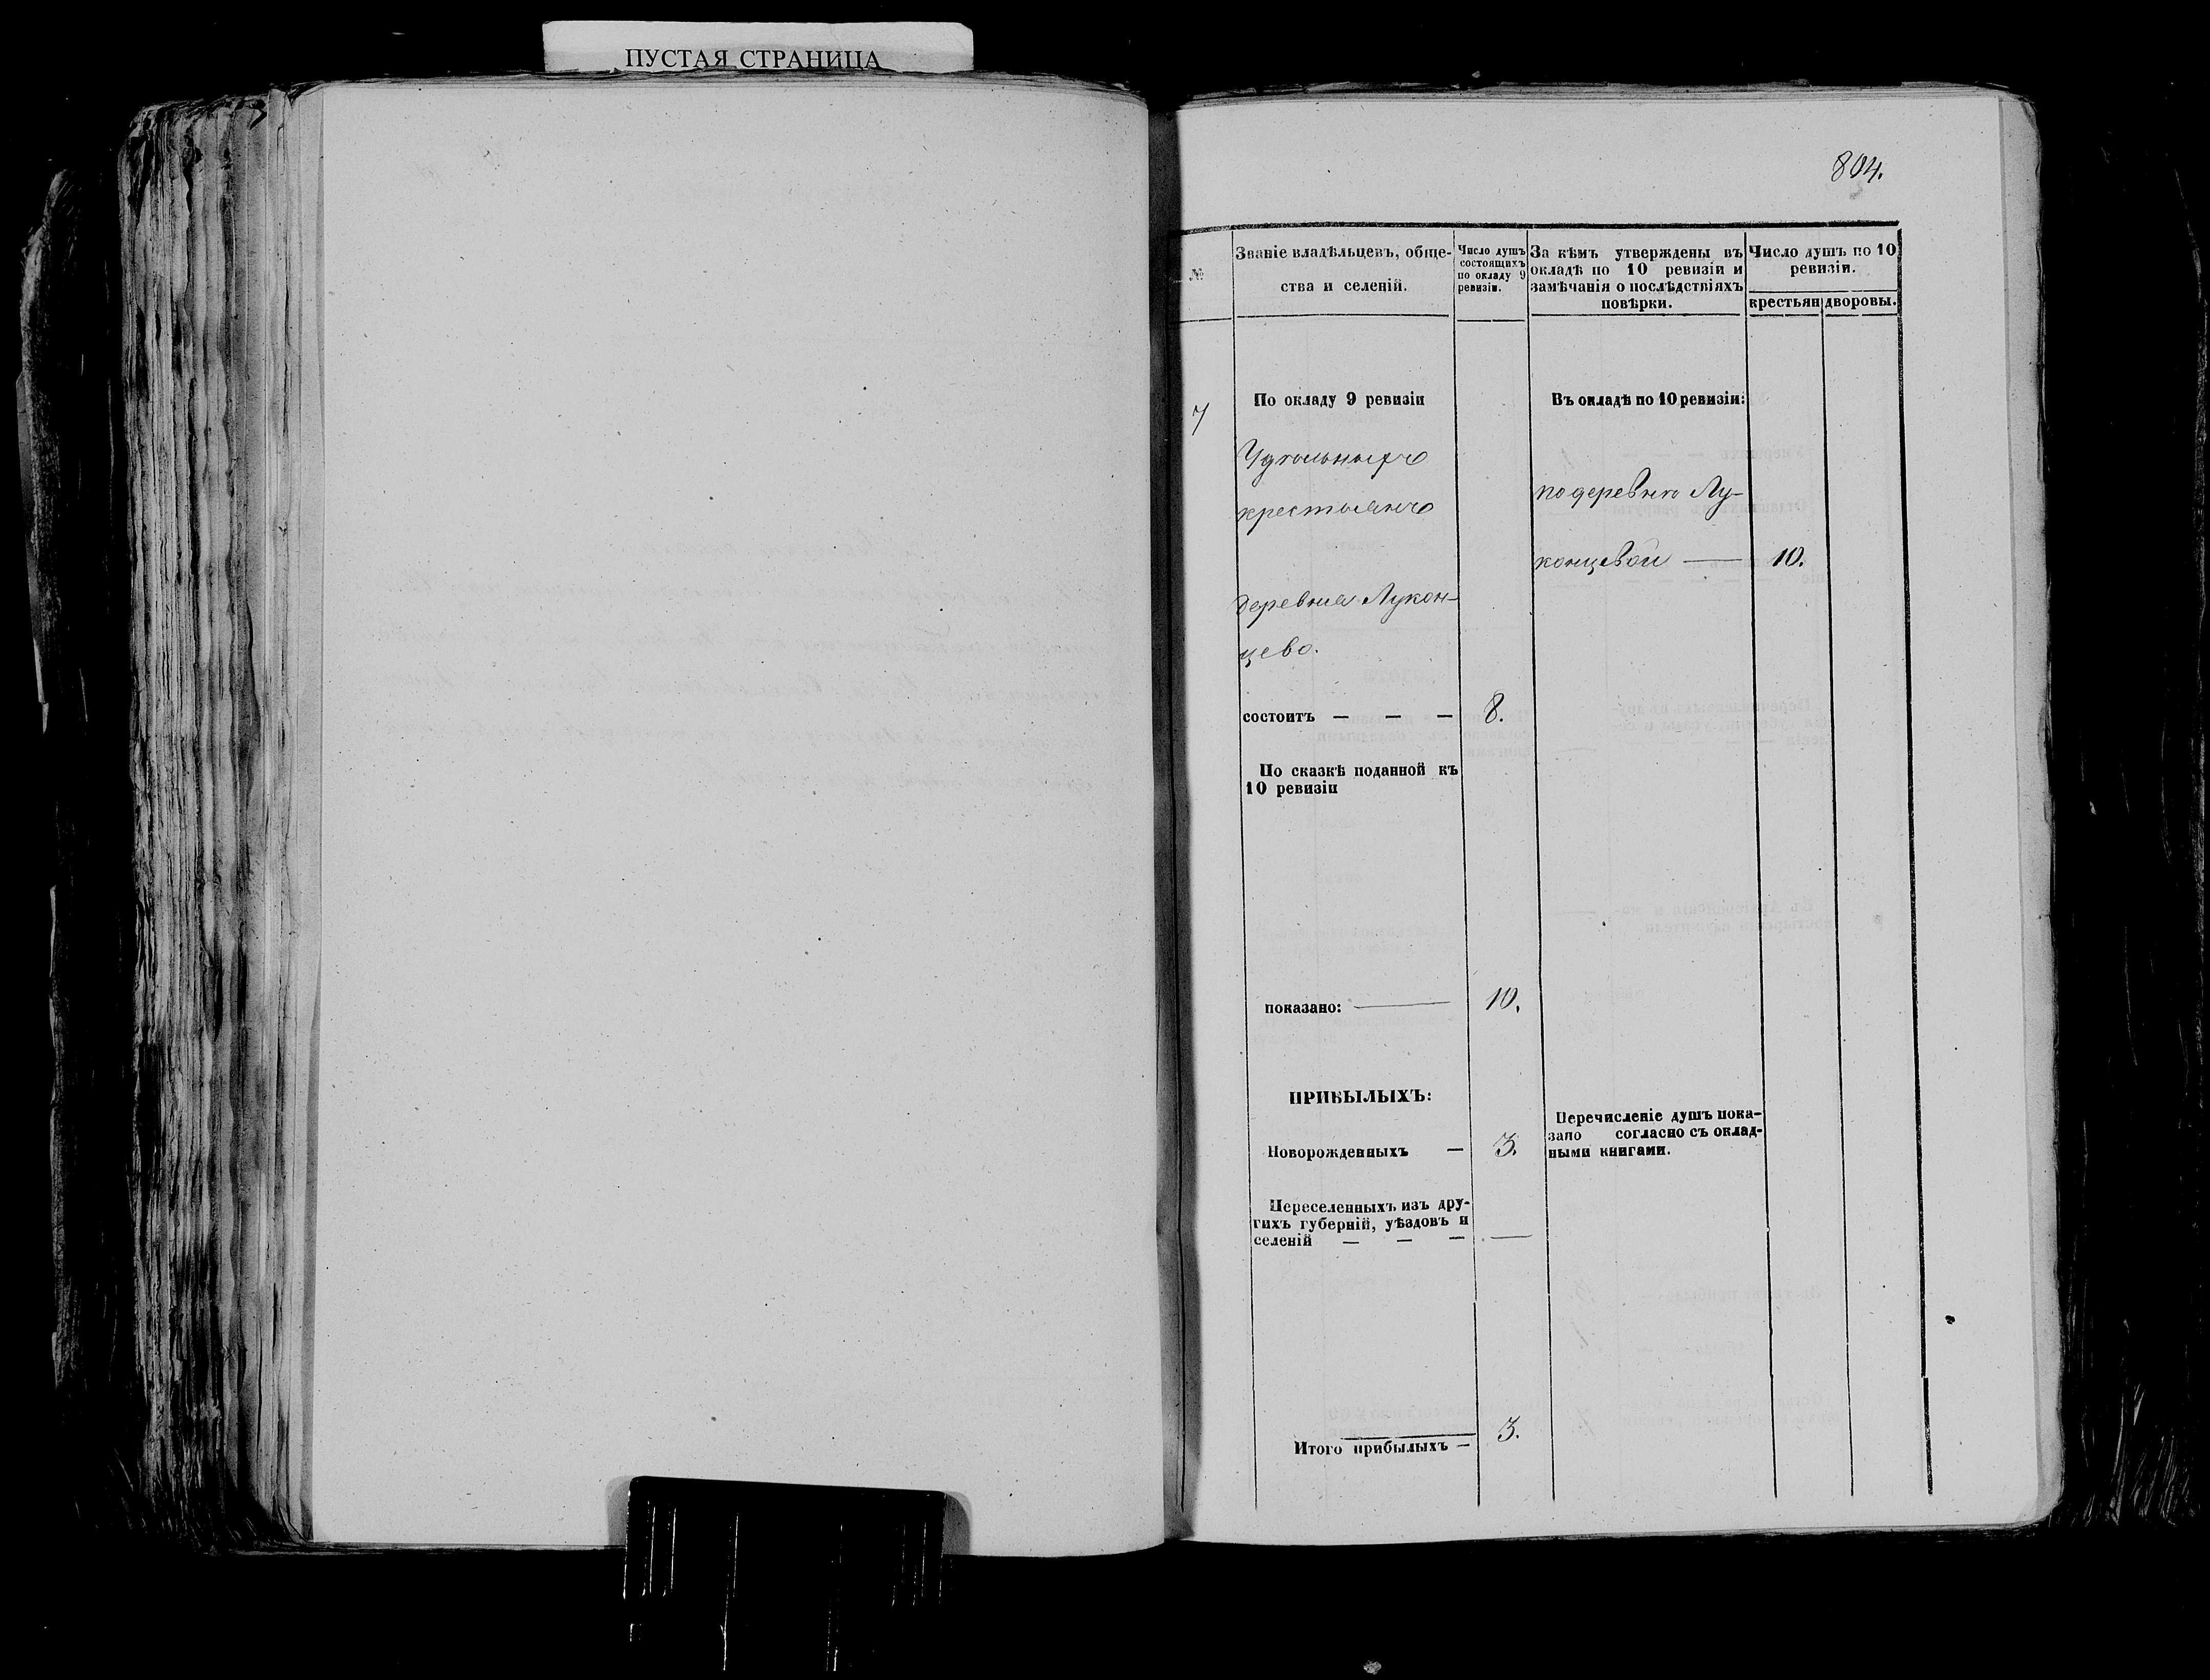 ПУСТАЯ СТРАНИЦА
804.
№
Званіе владѣльцевъ, обще-
ства и селеній.
Число душъ
состоящихъ
по окладу 9
ревизіи.
За кѣмъ утверждены въ
окладѣ по 10 ревизіи и
замѣчанія о послѣдствіяхъ
повѣрки.
Число душъ по 10
ревизіи.
крестьян
дворовы.
7
По окладу 9 ревизіи
Удѣльныхъ
крестьянъ
деревня Лукон-
цево.
состоитъ — — — 8.
По сказкѣ поданной къ
10 ревизіи
показано: 10.
ПРИБЫЛЫХЪ:
Новорожденныхъ — 3.
Переселенныхъ изъ дру-
гихъ губерній, уѣздовъ и
селеній — — — —
Итого прибылыхъ — 3.
Въ окладѣ по 10 ревизіи:
по деревнѣ Лу-
концевой — 10.
Перечисленіе душъ пока-
зано согласно съ оклад-
ными книгами.